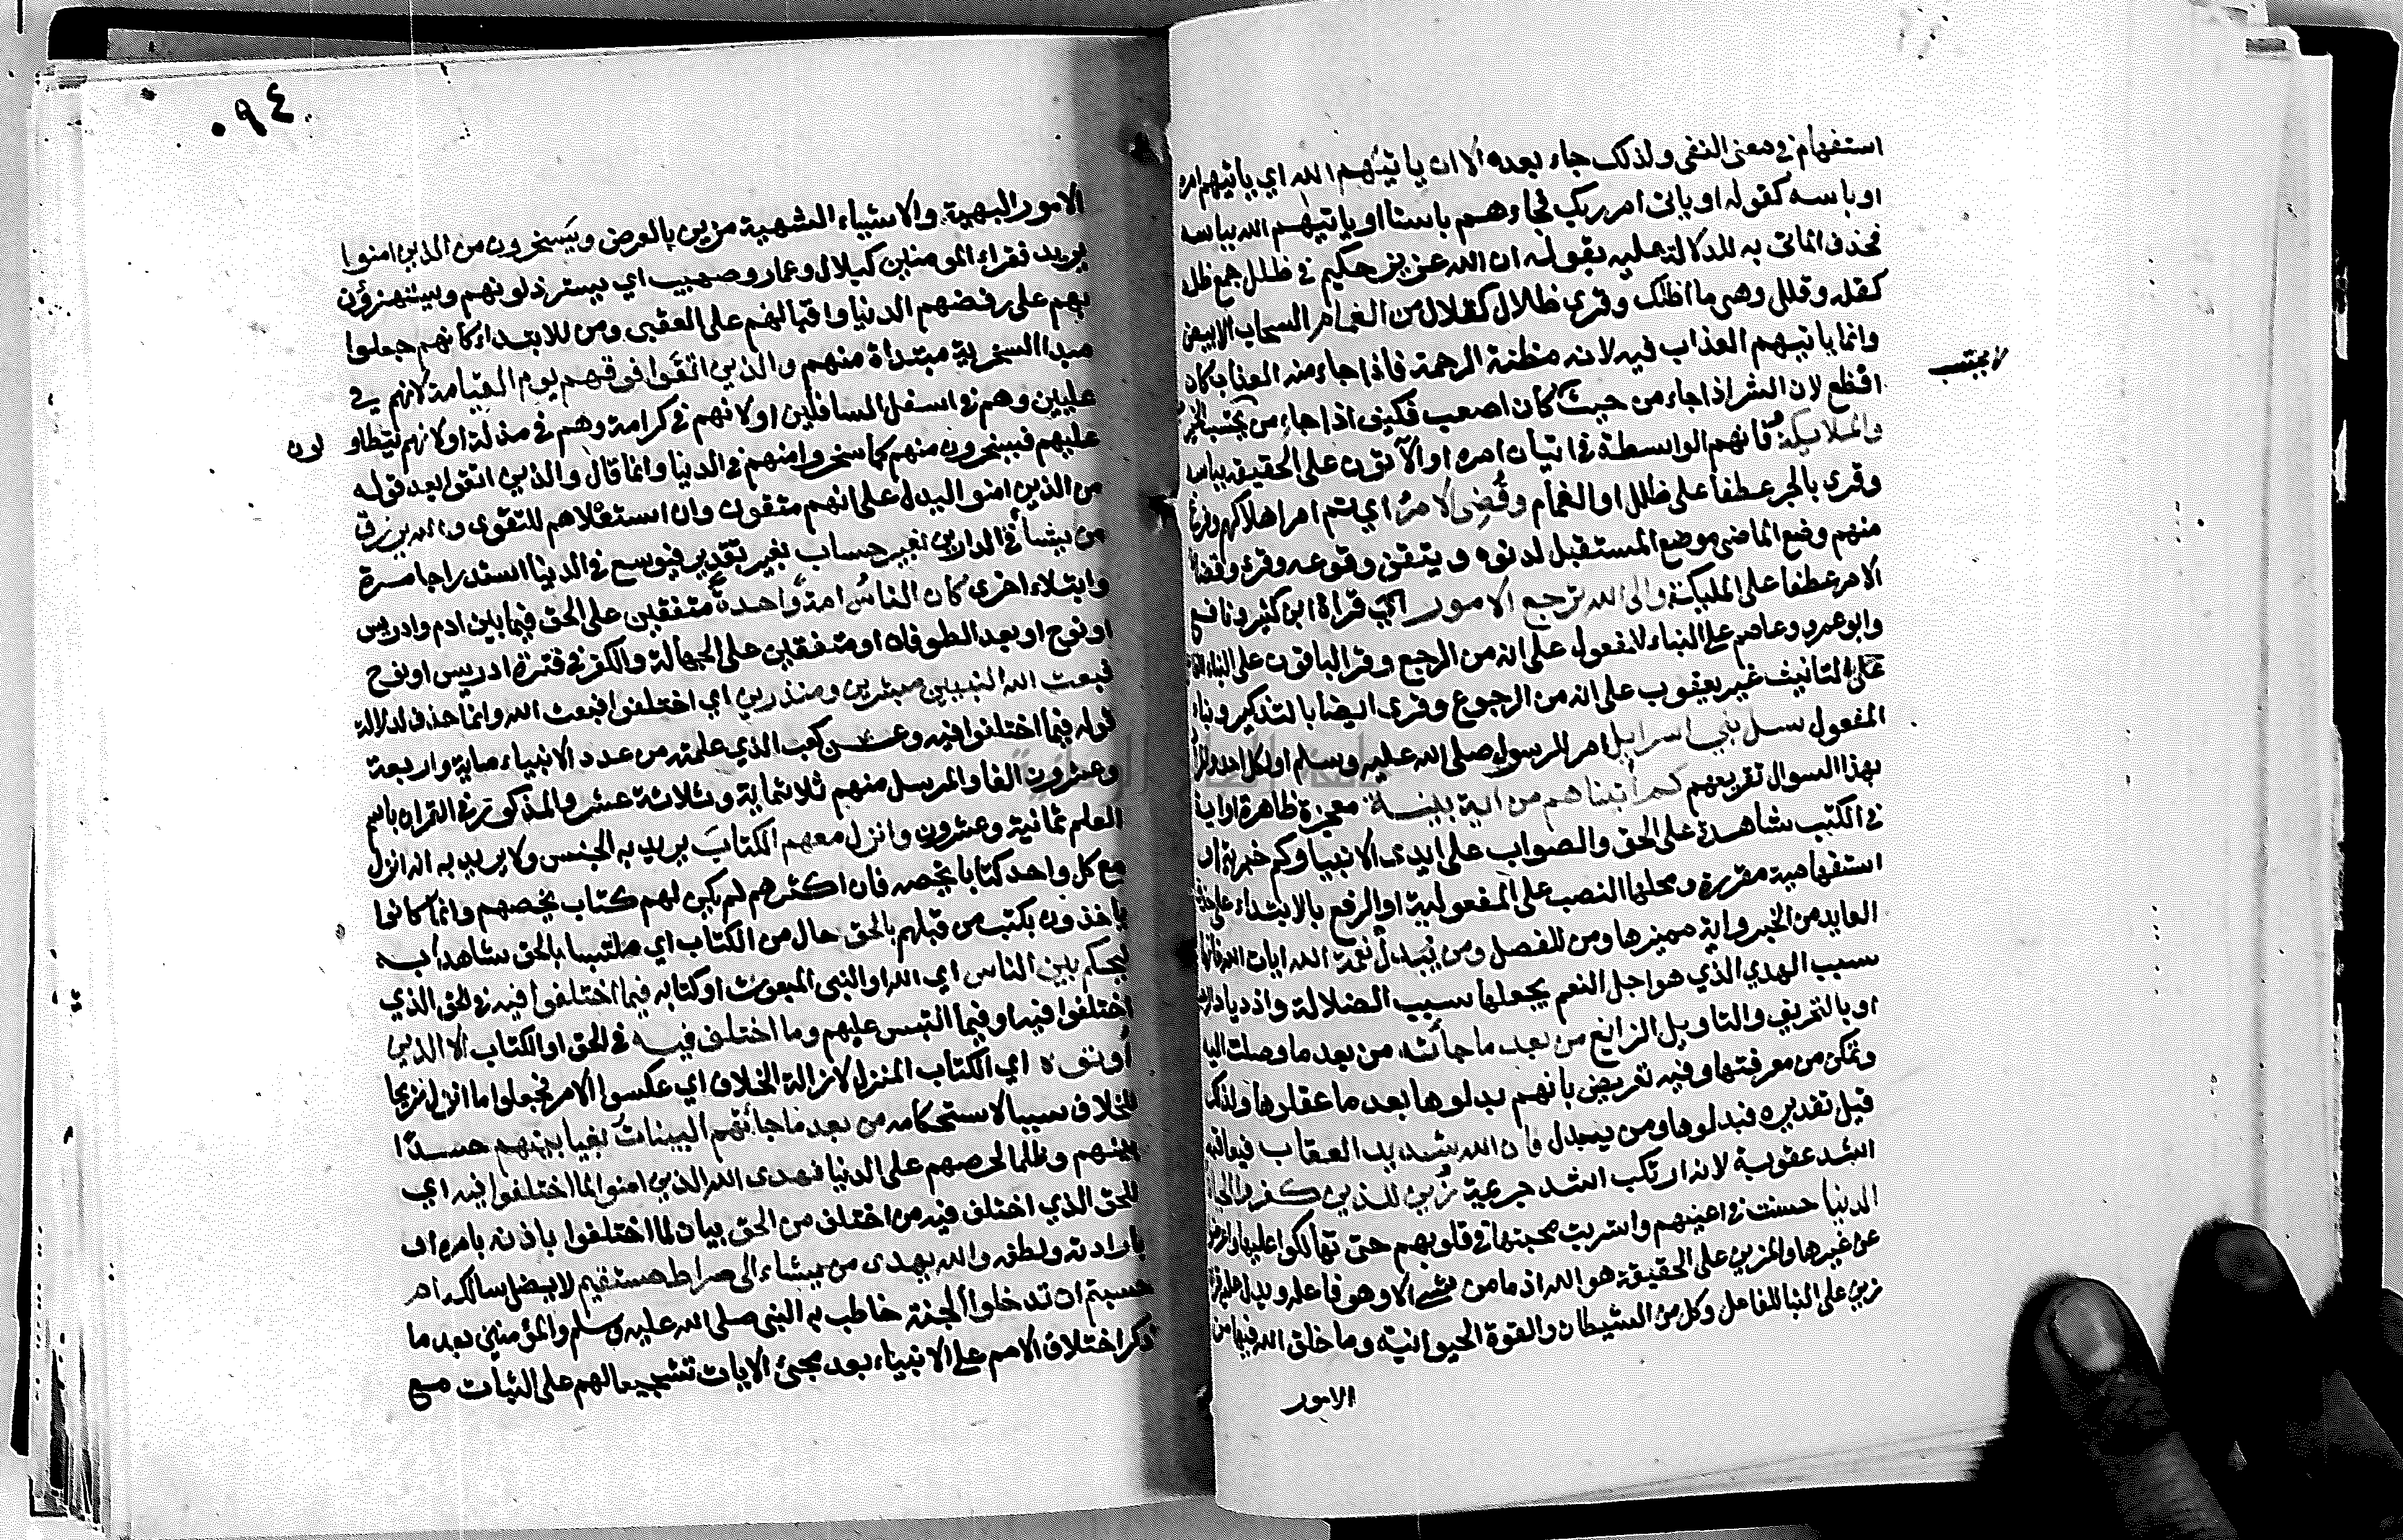 استفهام في معنى النفي ولذلك جاء بعده الا ان ياتيهم الله اي ياتيهم امره
او باسه كقوله او ياتى امر ربك فجاءهم باسنا او ياتيهم الله بباسه
فحذف الماتى به للدلالة عليه بقوله ان الله عزيز حكيم في ظلل جمع ظلة
كقلة وقلل وهى ما اظلك وقرئ ظلال كقلال من الغمام السحاب الابيض
وانما ياتيهم العذاب فيه لانه مظنة الرحمة فاذا جاء منه العذاب كان
افظع لان الشر اذا جاء من حيث كان اصعب فكيف اذا جاء من يحتسب الخير
لا يحتسب
والملايكة فانهم الواسطة في اتيان امره او الآتون على الحقيقة بباسه
وقرئ بالجر عطفا على ظلل او الغمام وقُضِى الامرُ اي تم امر اهلاكهم وفرغ
منهم وضع الماضى موضع المستقبل لدنوه ويتقن وقوعه وقرئ وقضاء
الامر عطفا على المليكة والى الله ترجع الامور قراة ابن كثير ونافع
وابو عمرو وعاصم على البناء للمفعول على انه من الرجع وقرا الباقون على البناء للفاعل
على التانيث غير يعقوب على انه من الرجوع وقرئ ايضا بالتذكير وبناء
المفعول سل بني اسرايل امر للرسول صلى الله عليه وسلم او لكل احد والمراد
بهذا السوال تقريعهم كم أتيناهم من آية بينة معجزة ظاهرة او اية
في الكتب شاهدة على الحق والصواب على ايدى الانبيا وكم خبرية او
استفهامية مقررة ومحلها النصب على المفعولية او الرفع بالابتداء على حذف
العايد من الخبر واية مميزها ومن للفصل ومن يبدل نعمة الله ايات الله فانها
سبب الهدي الذي هو اجل النعم يجعلها سبب الضلالة وازدياد الرجس
او بالتحريف والتاويل الزايغ من بعد ما جأته من بعد ما وصلت اليه
وتمكن من معرفتها وفيه تعريض بانهم بدلوها بعد ما عقلوها ولذلك
قيل تقديره فبدلوها ومن يبدل فان الله شديد العقاب فيعاقبه
اشد عقوبة لانه ارتكب اشد جريمة زُين للذين كفروا الحياة
الدنيا حسنت في اعينهم واشربت محبتها في قلوبهم حتى تهالكوا عليها واعرضوا
عن غيرها والمزين على الحقيقة هو الله اذ ما من شئ الا وهو فاعله ويدل عليه قراة
زين على البنا للفاعل وكل من الشيطان والقوة الحيوانية وما خلق الله فيها من
الامور
٠٩٤
الامور البهية والاشياء الشهية مزين بالعرض ويَسخرون من الذين امنوا
يريد فقراء المومنين كبلال وعمار وصهيب اي يسترذلونهم ويستهزؤن
بهم على رفضهم الدنيا واقبالهم على العقبى ومن للابتداء كانهم جعلوا
مبدا السخرية مبتداة منهم والذين اتقوا فوقهم يوم القيامة لانهم في
عليين وهم في اسفل السافلين او لانهم في كرامة وهم في مذلة او لانهم يتطاو
لون
عليهم فيسخرون منهم كما سخروا منهم في الدنيا وانما قال والذين اتقوا بعد قوله
من الذين امنوا ليدل على انهم متقون وان استعلاهم للتقوى والله يرزق
من يشأ في الدارين بغير حساب بغير تقدير فيوسع في الدنيا استدراجا مرة
وابتلاء اخرى كان الناسُ امةً واحدةً متفقين على الحق فيما بين ادم وادريس
او نوح او بعد الطوفان او متفقين على الجهالة والكفر في فترة ادريس او نوح
فبعث الله النبيين مبشرين ومنذرين اي اختلفوا فبعث الله وانما حذف لدلالة
قوله فيما اختلفوا فيه وعن كعب الذي علمته من عدد الانبياء ماية واربعة
وعشرون الفا والمرسل منهم ثلاثماية وثلاثة عشر والمذكور في القران باسم
العلم ثمانية وعشرون وانزل معهم الكتابَ يريد به الجنس ولا يريد به انه انزل
مع كل واحد كتابا يخصه فان اكثرهم لم يكن لهم كتاب يخصهم وانما كانوا
ياخذون بكتب من قبلهم بالحق حال من الكتاب اي ملتبسا بالحق شاهدا به
ليحكم بين الناس اي الله او النبى المبعوث او كتابه فيما اختلفوا فيه في الحق الذي
اختلفوا فيه او فيما التبس عليهم وما اختلف فيه في الحق او الكتاب الا الذين
أوتوه اي الكتاب المنزل لازالة الخلاف اي عكسوا الامر فجعلوا ما انزل مزيحا
للخلاف سببا لاستحكامه من بعد ما جاءتهم البينات بغيا بينهم حسدا
بينهم وظلما لحرصهم على الدنيا فهدى الله الذين امنوا لما اختلفوا فيه اي
للحق الذي اختلف فيه من اختلف من الحق بيان لما اختلفوا باذنه بامره او
بارادته ولطفه والله يهدى من يشاء الى صراط مستقيم لا يضل سالكه ام
حسبتم ان تدخلوا الجنة خاطب به النبى صلى الله عليه وسلم والمؤمنين بعد ما
ذكر اختلاف الامم على الانبياء بعد مجئ الايات تشجيعا لهم على الثبات مع